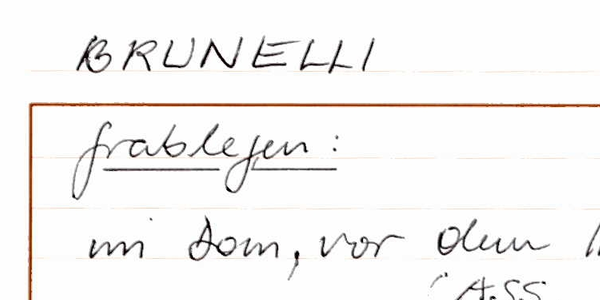 BRUNELLI
Grablegen:
im Dom, vor dem
(Ass